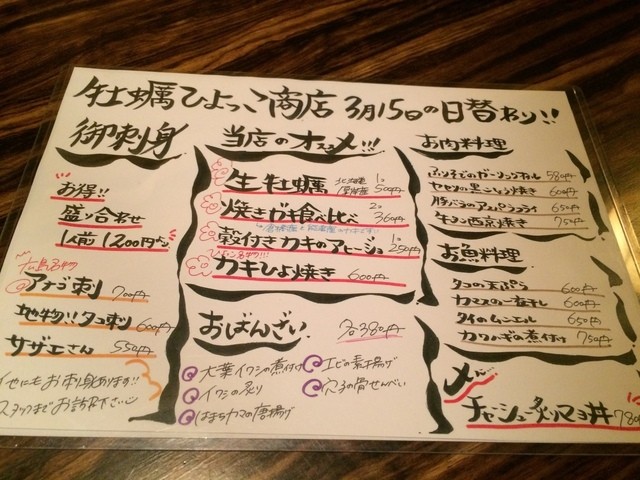 牡蠣ひよっこ商店 3月15日の日替わり!!
御刺身
お得!!
盛り合わせ
1人前 1200円から
アナゴ刺 700円
地物!!タコ刺 600円
サザエさん 550円
他にもお刺身あります!!
スタッフまでお訪ね下さい
当店のオススメ!!!
生牡蠣 1コ 500円
焼きガキ食べ比べ 2コ 360円
殻付きカキのアヒージョ 1コ 250円
カキひよ焼き 600円
おばんざい 各380円
大葉イワシの煮付け
イワシの炙り
はまちカマの唐揚げ
エビの素揚げ
穴子の骨せんべい
お肉料理
580円
セセリの黒こしょう焼き 600円
豚バラのアスパラフライ 650円
牛タン西京焼き 750円
お魚料理
タコの天ぷら 600円
カマスの一夜干し 600円
タイのムニエル 650円
カワハギの煮付け 750円
〆
チャーシュー炙りマヨ丼 780円